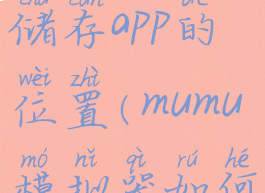 chǔ cún de
储存app的
wèi zhì
位置(mumu
mó nǐ qì rú hé
模拟器如何